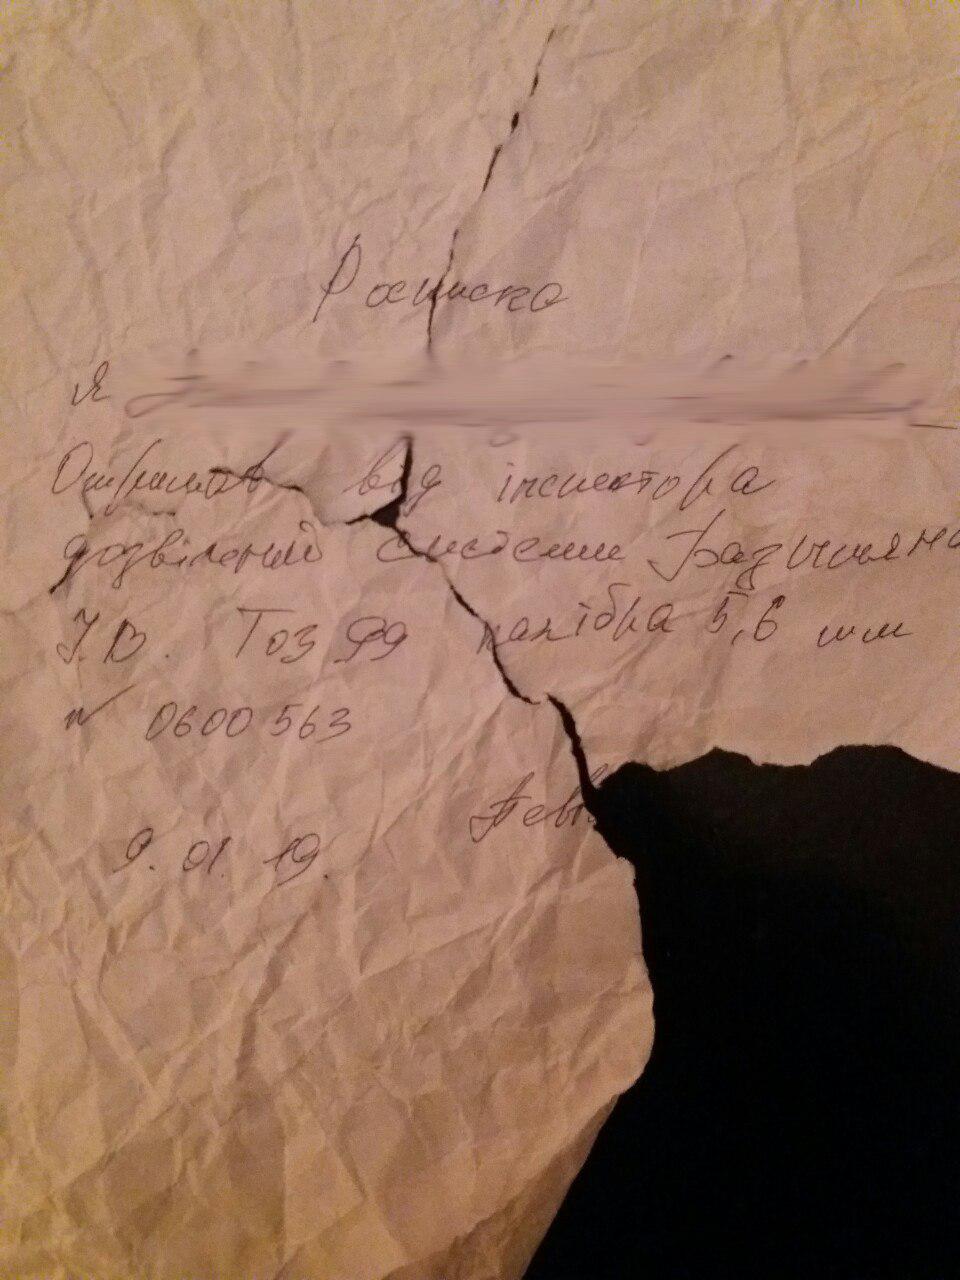 Росписка
Я
Отримав від інспектора
дозвільной системи
І.В. Тоз 99 калібра 5,6 мм
№ 0600563
9.01.19.